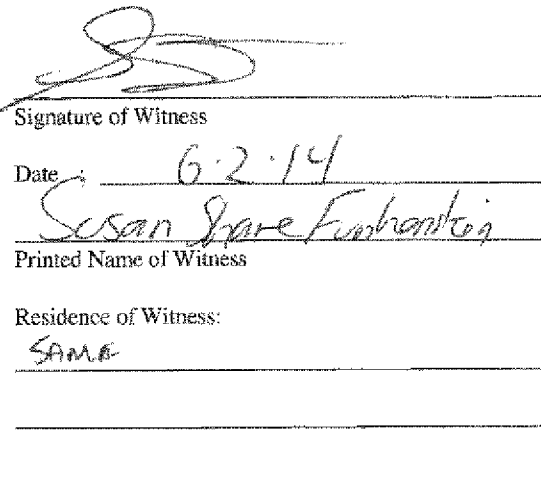 Signature of Witness
Date : 6·2·14
Susan Share
Printed Name of Witness
Residence of Witness:
SAME